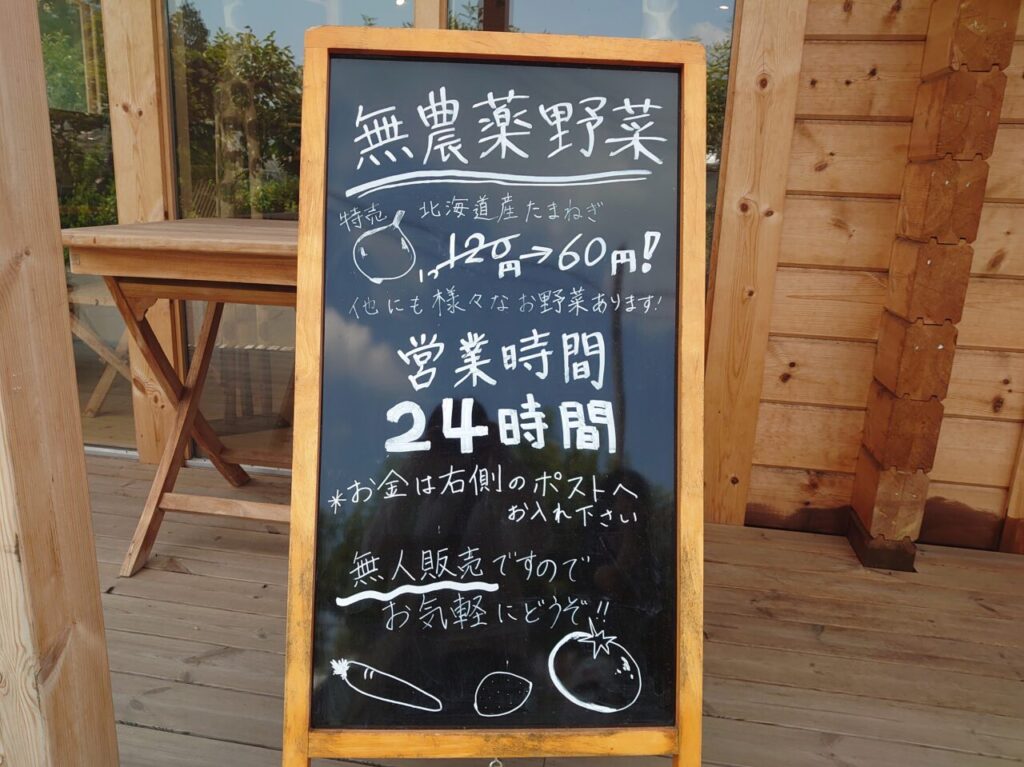 無農薬野菜
特売 北海道産たまねぎ
1ケ120円→60円!
他にも様々なお野菜あります!
営業時間
24時間
*お金は右側のポストへ
お入れ下さい
無人販売ですので
お気軽にどうぞ!!